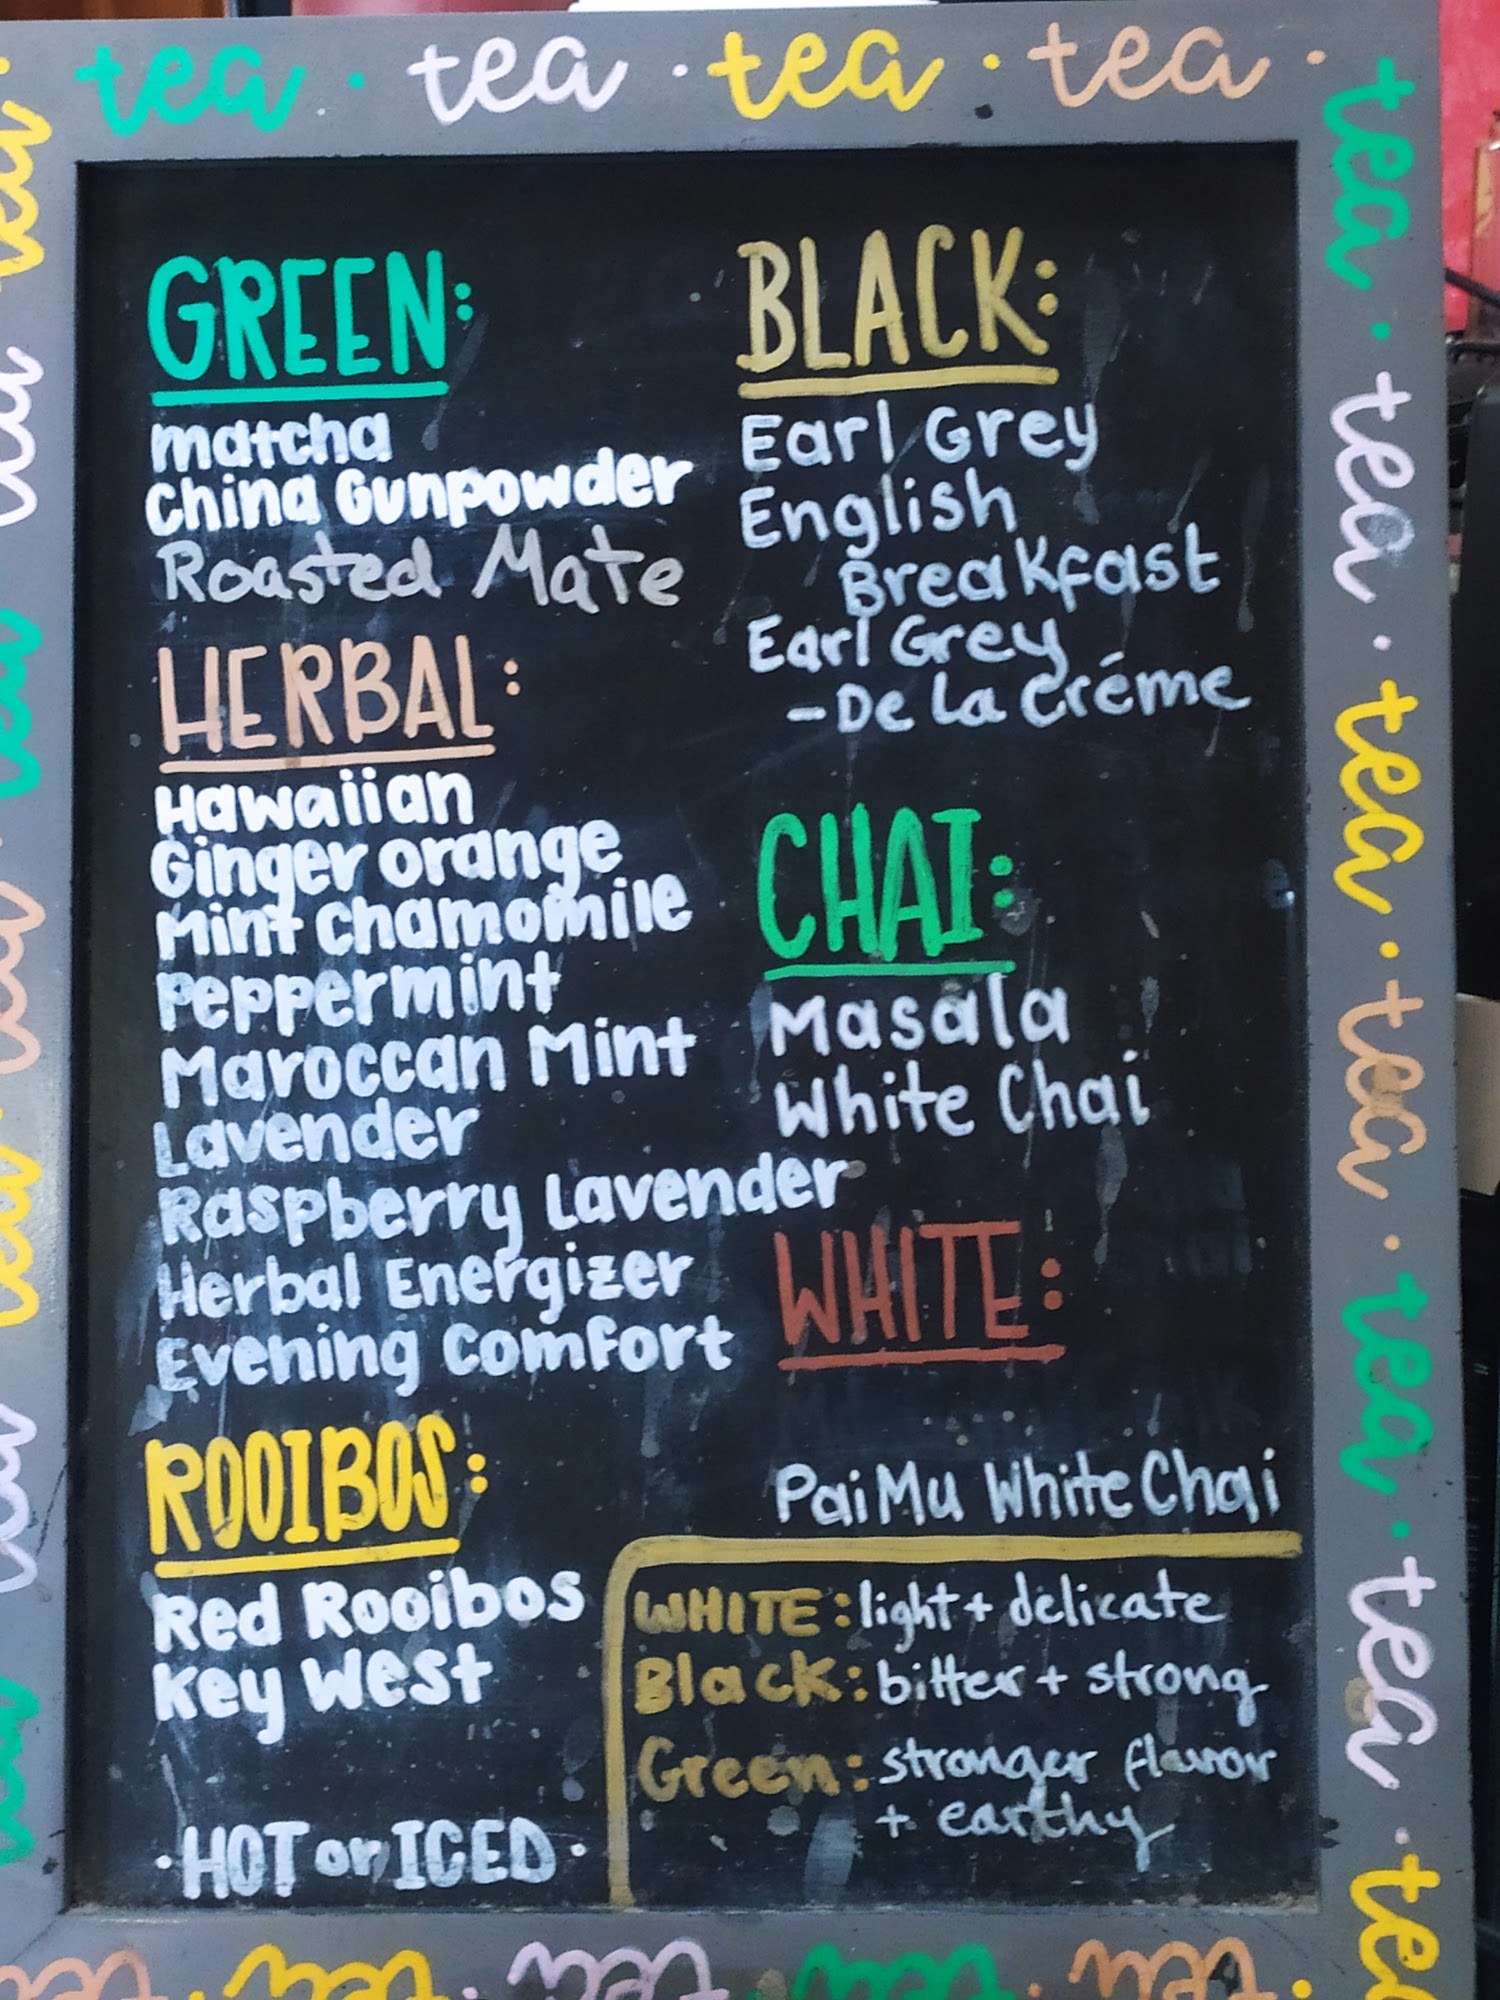 tea · tea · tea · tea ·
GREEN:
matcha
China Gunpowder
Roasted Mate
HERBAL:
Hawaiian
Ginger orange
Mint Chamomile
Peppermint
Maroccan Mint
Lavender
Raspberry Lavender
Herbal Energizer
Evening Comfort
ROOIBOS:
Red Rooibos
Key West
·HOT or ICED·
BLACK:
Earl Grey
English
Breakfast
Earl Grey
-De La Créme
CHAI:
Masala
White Chai
WHITE:
Pai Mu White Chai
WHITE: light + delicate
Black: bitter + strong
Green: stronger flavor
+ earthy
tea · tea · tea · tea · tea · tea · tea